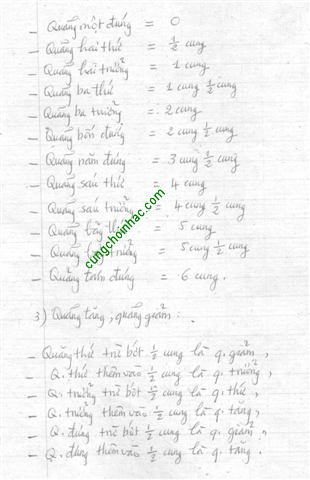 - Quãng một đúng = 0
- Quãng hai thứ = 1/2 cung
- Quãng hai trưởng = 1 cung
- Quãng ba thứ = 1 cung 1/2 cung
- Quãng ba trưởng = 2 cung
- Quãng bốn đúng = 2 cung 1/2 cung
- Quãng năm đúng = 3 cung 1/2 cung
- Quãng sáu thứ = 4 cung
- Quãng sáu trưởng = 4 cung 1/2 cung
- Quãng bảy thứ = 5 cung
- Quãng bảy trưởng = 5 cung 1/2 cung
- Quãng tám đúng = 6 cung.
cungchoinhac.com
3) Quãng tăng, quãng giảm:
- Quãng thứ trừ bớt 1/2 cung là q. giảm,
- Q. thứ thêm vào 1/2 cung là q. trưởng,
- Q. trưởng trừ bớt 1/2 cung là q. thứ,
- Q. trưởng thêm vào 1/2 cung là q. tăng,
- Q. đúng trừ bớt 1/2 cung là q. giảm,
- Q. đúng thêm vào 1/2 cung là q. tăng.